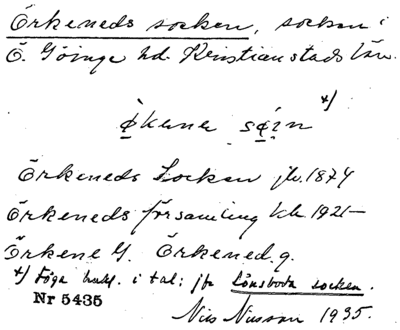 Örkeneds socken, socken i
Ö. Göinge hd. Kristianstads län.
ø̀kene sǿɪn +)
Örkeneds Socken jb. 1874
Örkeneds församling kb. 1921—
Örkene G. Örkened. g.
+) Föga brukl. i tal: jfr Lönsboda socken.
Nr 5435
Nils Nilsson 1935.